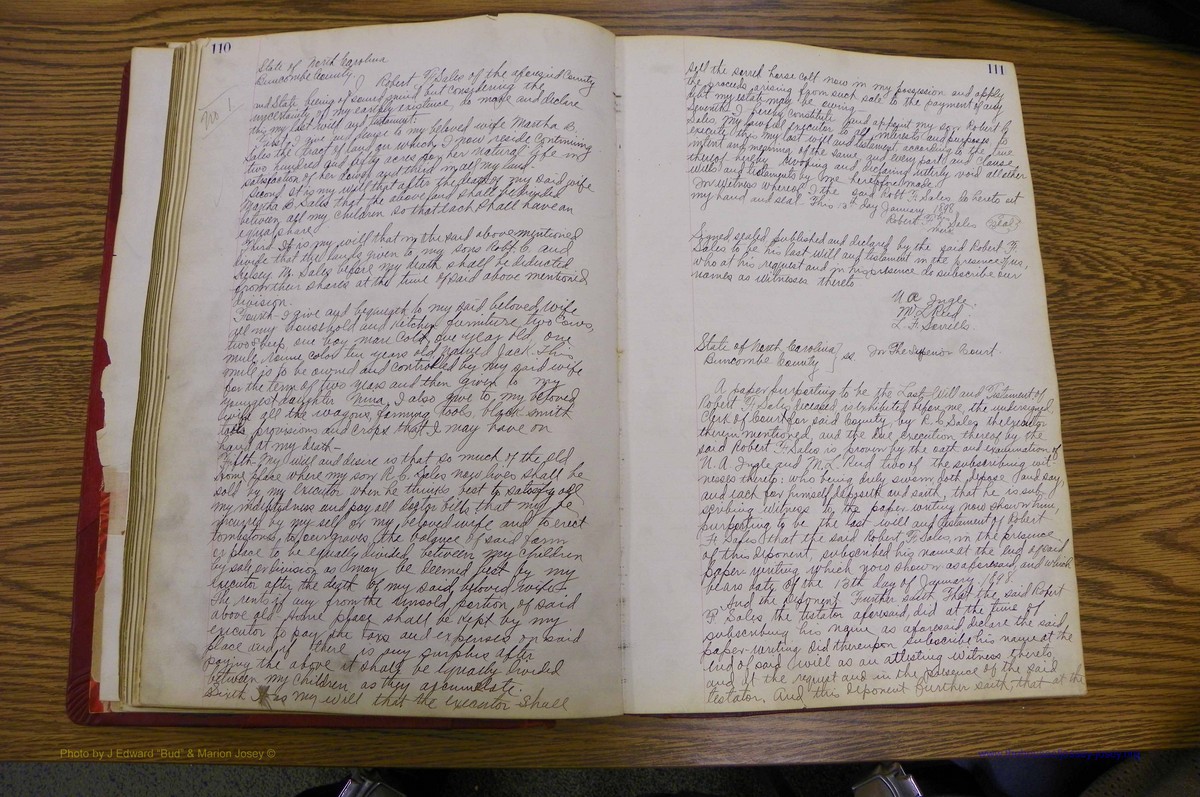 110
No 1
State of North Carolina
Buncombe County } I Robert F. Sales of the aforesaid County
and State being of sound mind but considering the
uncertainty of my earthly existence, do make and declare
this my last will and testament:
First. I give and devise to my beloved wife Martha B.
Sales the tract of land on which I now reside Containing
two hundred and fifty acres for her natural life in
satisfaction of her dower and third in all my lands
Second it is my will that after the death of my said wife
Martha B. Sales that the above land shall be divided
between all my children so that each shall have an
equal share
Third It is my will that in the said above mentioned
divide that the lands given to my sons Robt C. and
M. Sales before my death shall be deducted
from their shares at the time of said above mentioned
division.
Fourth I give and bequeath to my said beloved wife
all my household and kitchen furniture, two Cows,
two sheep one bay mare Colt, one year old, one
mule, color ten years old, named Jack This
mule is to be owned and controlled by my said wife
for the term of two years and then given to my
youngest daughter Nina, I also give to, my beloved
wife all the wagons, farming tools black smith
tools provisions and crops that I may have on
hand at my death-
Fifth My will and desire is that so much of the old
home place where my son R. C. Sales now lives shall be
sold by my executor when he thinks best to satisfy all
my indebtedness and pay all doctor bills that may be
incured by my self or my beloved wife and to erect
tombstones to our graves the balance of said farm
or place to be equally divided between my children
by sale or division as may be deemed best by my
executor after the death of my said beloved wife
The rents if any from the unsold portion of said
above old home place shall be kept by my
executor to pay the taxs and expenses on said
place and if there is any surplus after
paying the above it shall be equally divided
between my children as they accumulate
Sixth It is my will that the executor shall
111
sell the sorrel horse colt now in my possession and apply
the proceeds arising from such sale to the payment of any
debt my estate may be owing
Seventh I hereby constitute and appoint my son Robert C.
Sales, my lawful executor to all interests and purposes to
execute this my last will and testament, according to the true
intent and meaning of the same, and every part and clause
thereof hereby revoking and declaring utterly void all other
wills and testaments by me heretofore made.
In witness whereof I the said Robt F. Sales do hereto set
my hand and seal. This 13th day January 1898
Robert F. Sales (Seal)
Signed sealed published and declared by the said Robert F.
Sales to be his last will and testament in the presence of us,
who at his request and in his presence do subscribe our
names as witnesses thereto
N. A. Ingle.
M. L. Reed
L. F. Sorrells.
State of North Carolina }
Buncombe County } ss In The Superior Court.
A paper purporting to be the Last Will and Testament of
Robert F. Sales deceased is exhibited before me, the undersigned
Clerk of Court for said County, by R. C. Sales the executor
therein mentioned, and the due execution thereof by the
said Robert F. Sales is proven by the oath and examination of
N. A. Ingle and M. L. Reed two of the subscribing wit-
nesses thereto: who being duly sworn, doth depose and say,
and each for himself deposeth and saith, that he is sub-
scribing witness to the paper writing now shown him,
purporting to be the last will and testament of Robert
F. Sales that the said Robert F. Sales, in the presence
of this deponent, subscribed his name at the end of said
paper-writing which now shown as aforesaid, and which
bears date of the 13th day of January 1898.
And the deponent Further saith That the said Robert
F. Sales the testator aforesaid, did at the time of
subscribing his name as aforesaid declare the said
paper-writing did thereupon subscribe his name at the
end of said will as an attesting witness thereto,
and at the request and in the presence of the said
testator. And this deponent further saith, that at the
Photo by J Edward "Bud" & Marion Josey ©